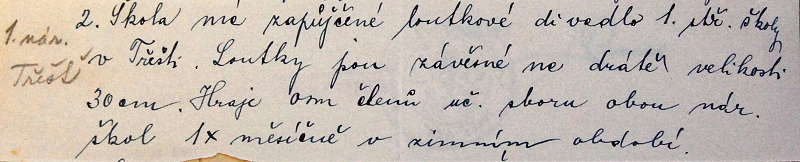 1. nár.
Třešť
2. Škola má zapůjčené loutkové divadlo 1. stř. školy
v Třešti. Loutky jsou závěsné na drátě velikosti
30 cm. Hraje osm členů uč. sboru obou nár.
škol 1x měsíčně v zimním období.